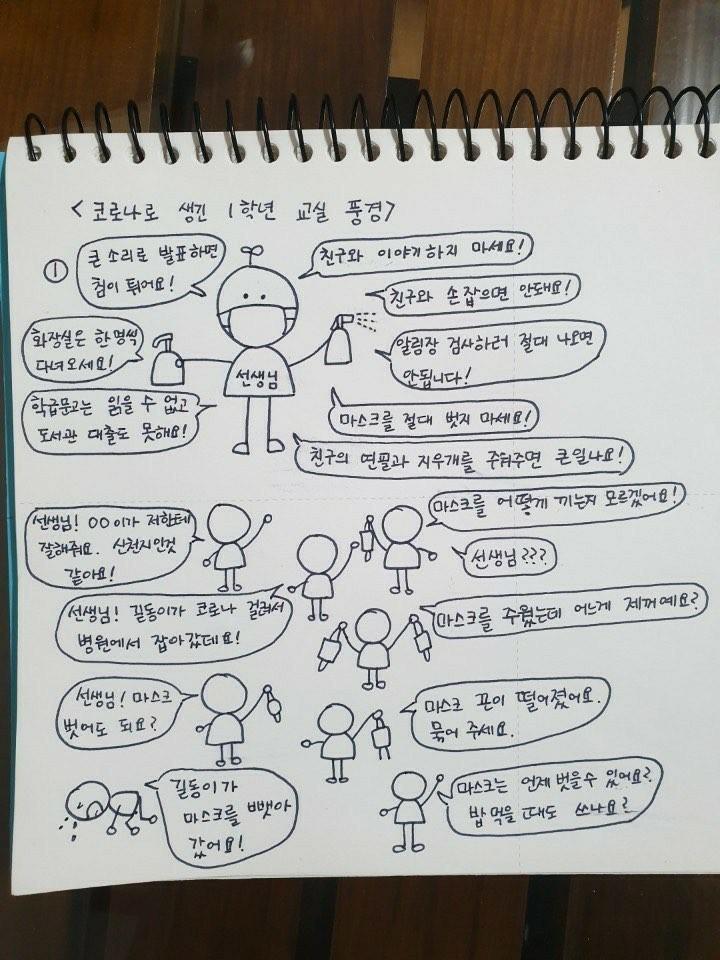 <코로나로 생긴 1학년 교실 풍경>
①
큰 소리로 발표하면
침이 튀어요!
친구와 이야기하지 마세요!
친구와 손 잡으면 안돼요!
화장실은 한 명씩
다녀오세요!
알림장 검사하러 절대 나오면
안됩니다!
선생님
학급문고는 읽을 수 없고
도서관 대출도 못해요!
마스크를 절대 벗지 마세요!
친구의 연필과 지우개를 주워주면 큰일나요!
선생님! OO이가 저한테
잘해줘요. 신천지인것
같아요!
마스크를 어떻게 끼는지 모르겠어요!
선생님???
선생님! 길동이가 코로나 걸려서
병원에서 잡아갔데요!
마스크를 주웠는데 어느게 제꺼예요?
선생님! 마스크
벗어도 되요?
마스크 끈이 떨어졌어요.
묶어 주세요.
길동이가
마스크를 뺏아
갔어요!
마스크는 언제 벗을수 있어요?
밥 먹을 때도 쓰나요?